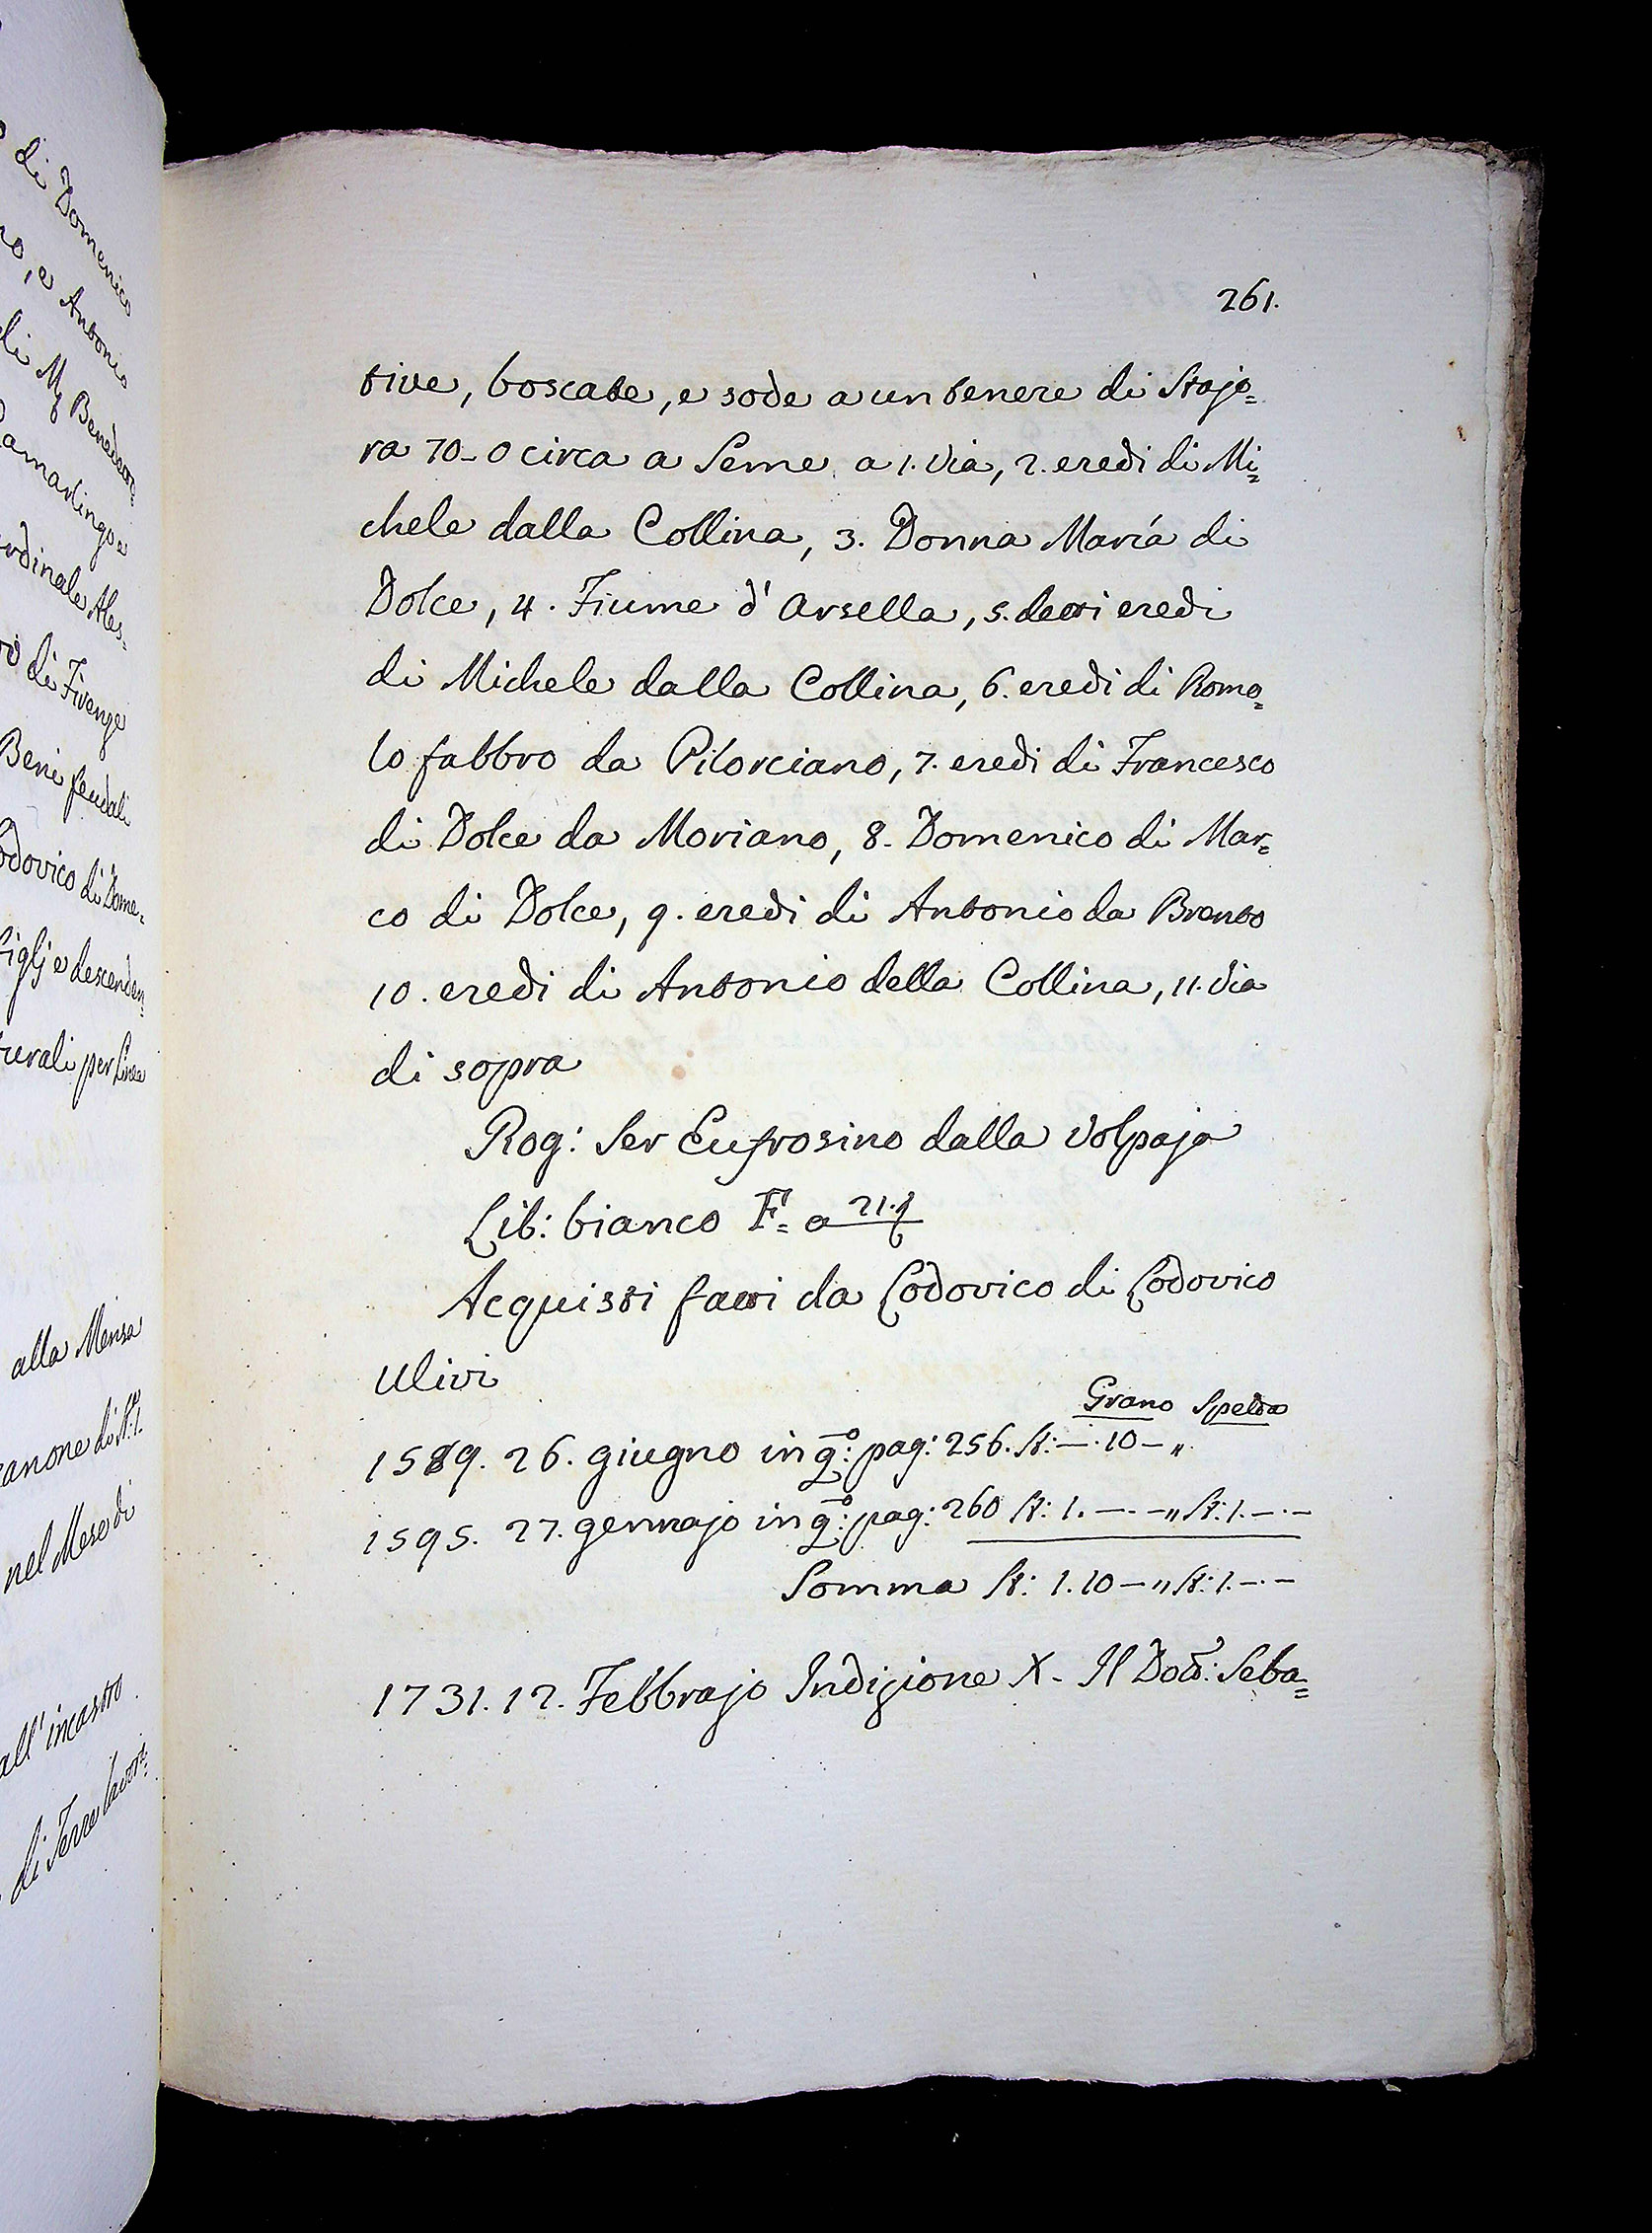 di Domenico
no, e Antonio
di Mg Benedett=
amartingo e
rdinale Ales=
di Firenze
Beni feudali
odovico di Dome=
figlj e descenden=
turali per Linea
alla Mensa
canone di St: 1.
nel Mese di
all'incanto
di Terre lavora=
261.
tive, boscate, e sode a un tenere di Staja=
ra 70-0 circa a Seme a 1. Via, 2. eredi di Mi=
chele dalla Collina, 3. Donna María di
Dolce, 4. Fiume d'Arsella, 5. detti eredi
di Michele dalla Collina, 6. eredi di Romo=
lo fabbro da Pilorciano, 7. eredi di Francesco
di Dolce da Moriano, 8. Domenico di Mar=
co di Dolce, 9. eredi di Antonio da Brento
10. eredi di Antonio della Collina, 11. Via
di sopra
Rog: Ser Eufrosino dalla Volpaja
Lib: bianco F= a 21.
Acquisti fatti da Lodovico di Lodovico
Ulivi
Grano Spelda
1589. 26. giugno in q:º pag: 256. St: —. 10 — "
1595. 27. gennajo in q:º pag: 260 St: 1. —. — " St: 1. —. —
Somma St: 1. 10 — " St: 1. —. —
1731. 12. Febbrajo Indizione X. Il Dott: Seba=